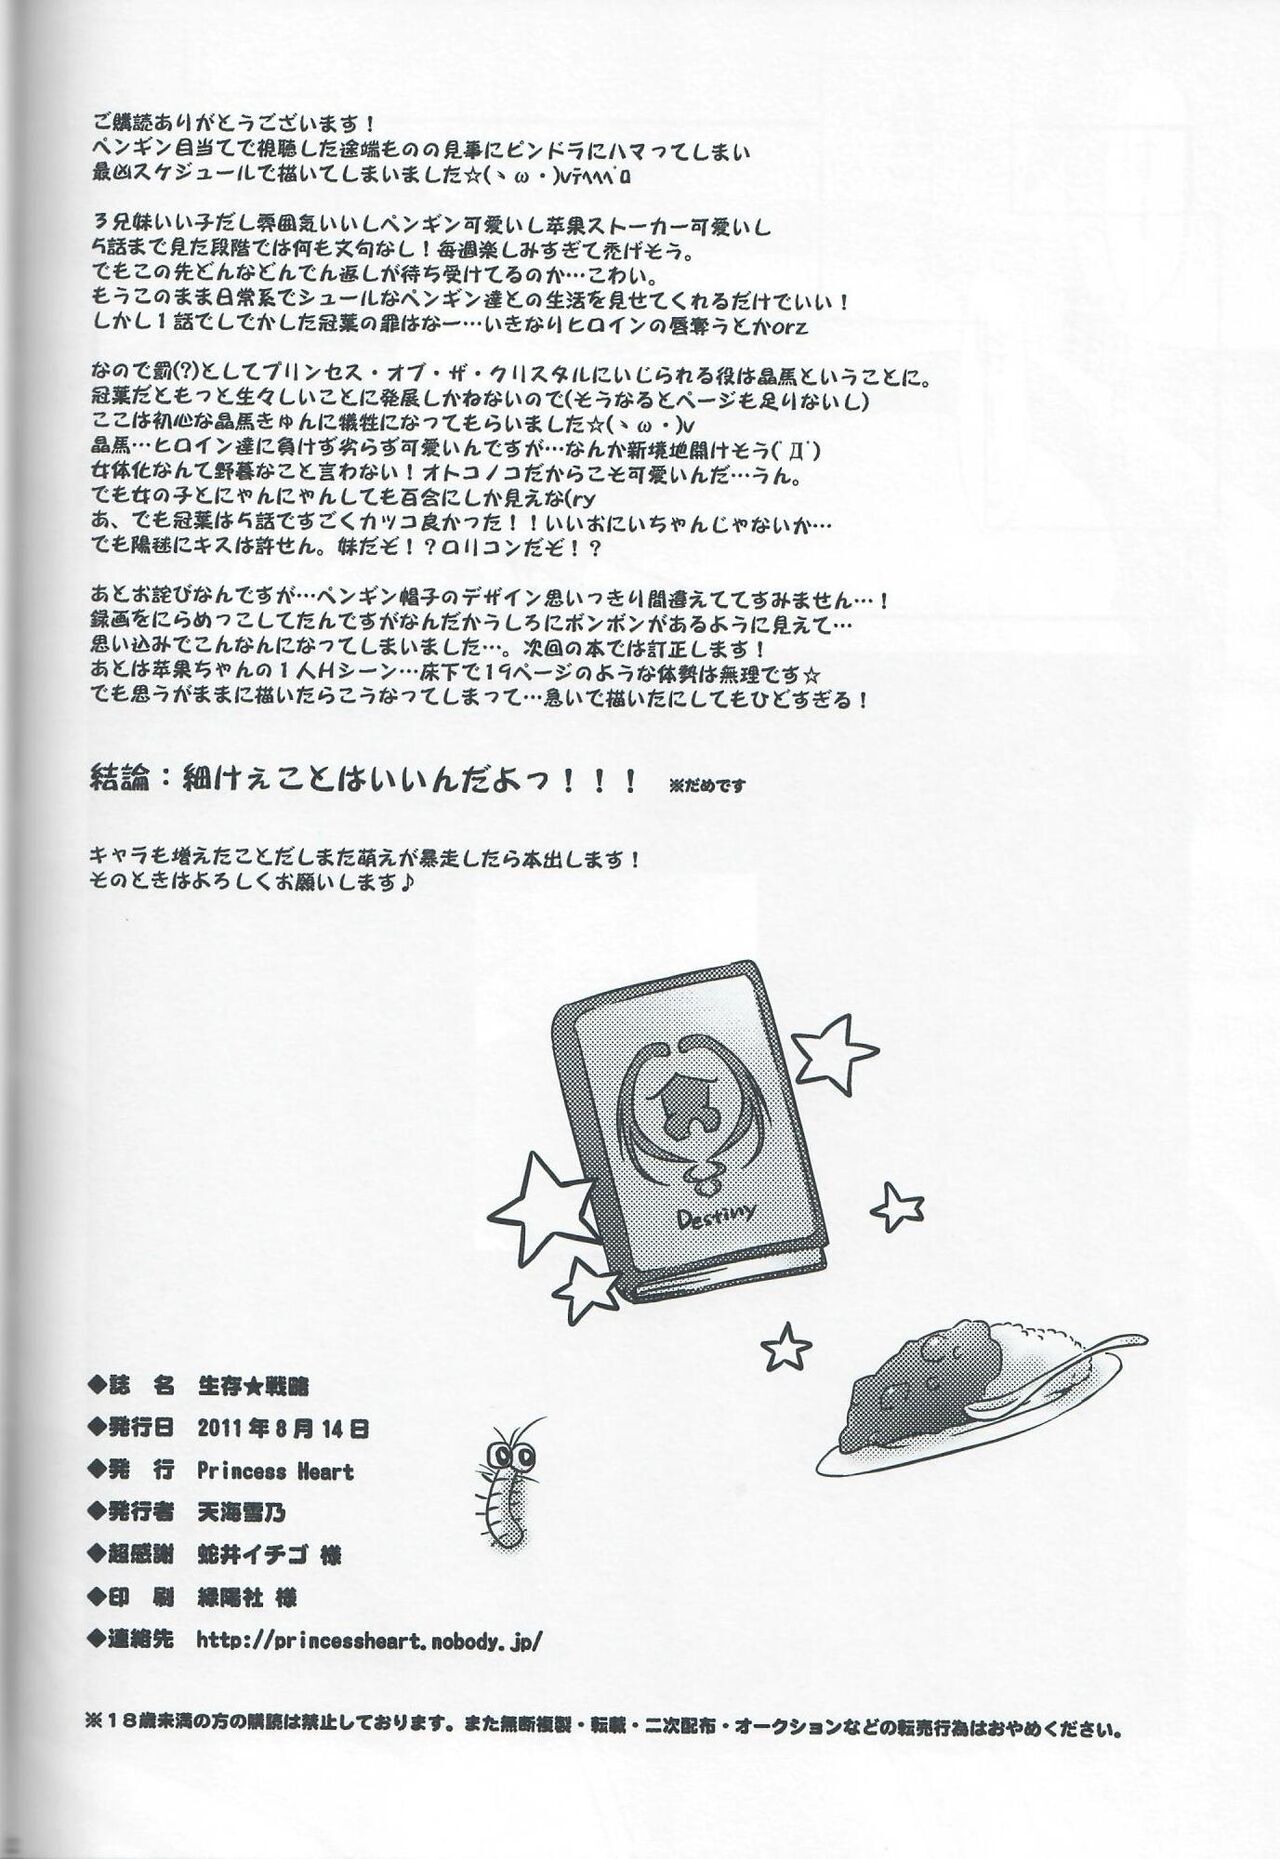 ご購読ありがとうございます！
ペンギン目当てで視聴した途端ものの見事にピンドラにハマってしまい
最凶スケジュールで描いてしまいました☆(ヽω・)vﾃﾍﾍﾟﾛ
3兄妹いい子だし雰囲気いいしペンギン可愛いし苹果ストーカー可愛いし
5話まで見た段階では何も文句なし！毎週楽しみすぎて禿げそう。
でもこの先どんなどんでん返しが待ち受けてるのか…こわい。
もうこのまま日常系でシュールなペンギン達との生活を見せてくれるだけでいい！
しかし1話でしでかした冠葉の罪はなー…いきなりヒロインの唇奪うとかorz
なので罰(?)としてプリンセス・オブ・ザ・クリスタルにいじられる役は晶馬ということに。
冠葉だともっと生々しいことに発展しかねないので(そうなるとページも足りないし)
ここは初心な晶馬きゅんに犠牲になってもらいました☆(ヽω・)v
晶馬…ヒロイン達に負けず劣らず可愛いんですが…なんか新境地開けそう(ﾟДﾟ)
女体化なんて野暮なこと言わない！オトコノコだからこそ可愛いんだ…うん。
でも女の子とにゃんにゃんしても百合にしか見えな(ry
あ、でも冠葉は5話ですごくカッコ良かった！！いいおにいちゃんじゃないか…
でも陽毬にキスは許せん。妹だぞ！？ロリコンだぞ！？
あとお詫びなんですが…ペンギン帽子のデザイン思いっきり間違えててすみません…！
録画をにらめっこしてたんですがなんだかうしろにボンボンがあるように見えて…
思い込みでこんなんになってしまいました…。次回の本では訂正します！
あとは苹果ちゃんの1人Hシーン…床下で19ページのような体勢は無理です☆
でも思うがままに描いたらこうなってしまって…急いで描いたにしてもひどすぎる！
結論：細けぇことはいいんだよっ！！！ ※だめです
キャラも増えたことだしまた萌えが暴走したら本出します！
そのときはよろしくお願いします♪
Destiny
◆誌　名　生存★戦略
◆発行日　2011年8月14日
◆発　行　Princess Heart
◆発行者　天海雪乃
◆超感謝　蛇井イチゴ 様
◆印　刷　緑陽社 様
◆連絡先　http://princessheart.nobody.jp/
※18歳未満の方の購読は禁止しております。また無断複製・転載・二次配布・オークションなどの転売行為はおやめください。